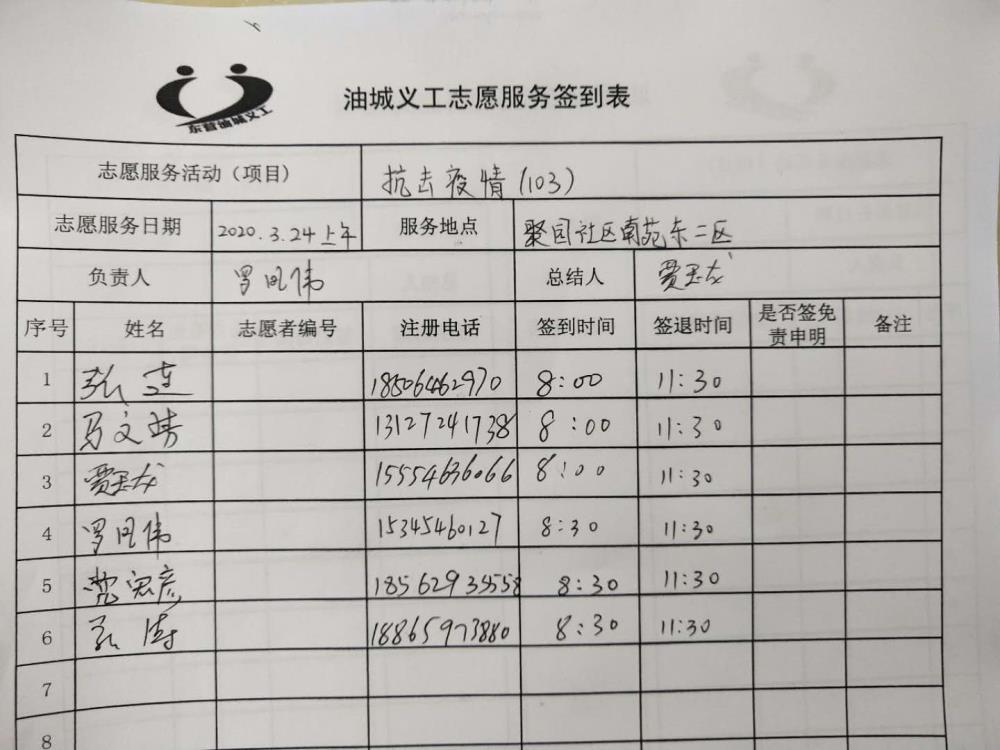 东营油城义工
油城义工志愿服务签到表
志愿服务活动（项目） 抗击疫情(103)
志愿服务日期 2020.3.24上午 服务地点 聚园社区南苑东二区
负责人 罗凤伟 总结人 贾玉龙
序号 姓名 志愿者编号 注册电话 签到时间 签退时间 是否签免责申明 备注
1 张莲 18506462970 8:00 11:30
2 马文靖 13127241738 8:00 11:30
3 贾玉龙 15554636066 8:00 11:30
4 罗凤伟 15345460127 8:30 11:30
5 18562935558 8:30 11:30
6 18865973880 8:30 11:30
7
8